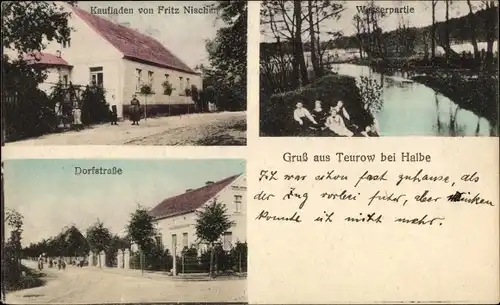 Kaufladen von Fritz Nischer
Wasserpartie
Gruß aus Teurow bei Halbe
Dorfstraße
Ich war schon fast zuhause, als
der Zug vorbei fuhr, aber winken
konnte ich nicht mehr.